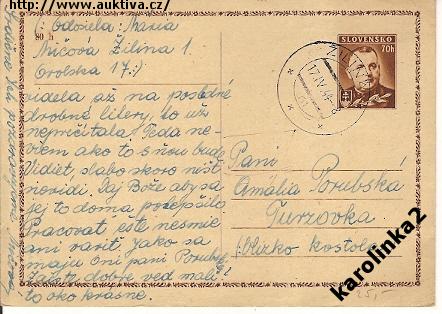 http://www.auktiva.cz
Odosiela: Mária
Mičová Žilina 1.
Orolská 17.
80 h
SLOVENSKO
70h
ŽILINA
videla až na posledné
drobné litery, to už
neprečítala. Teda ne-
viem ako to s ňou bude
Vidieť, slabo skoro ništ
nevidí. Daj Bože aby sa
jej to doma polepšilo
Pracovať ešte nesmie
ani variť. Jako sa
majú Oni pani Porubská?
dobre veď mali
to oko krásne.
Pani
Amália Porubská
Turzovka
blízko kostola
karolinka2